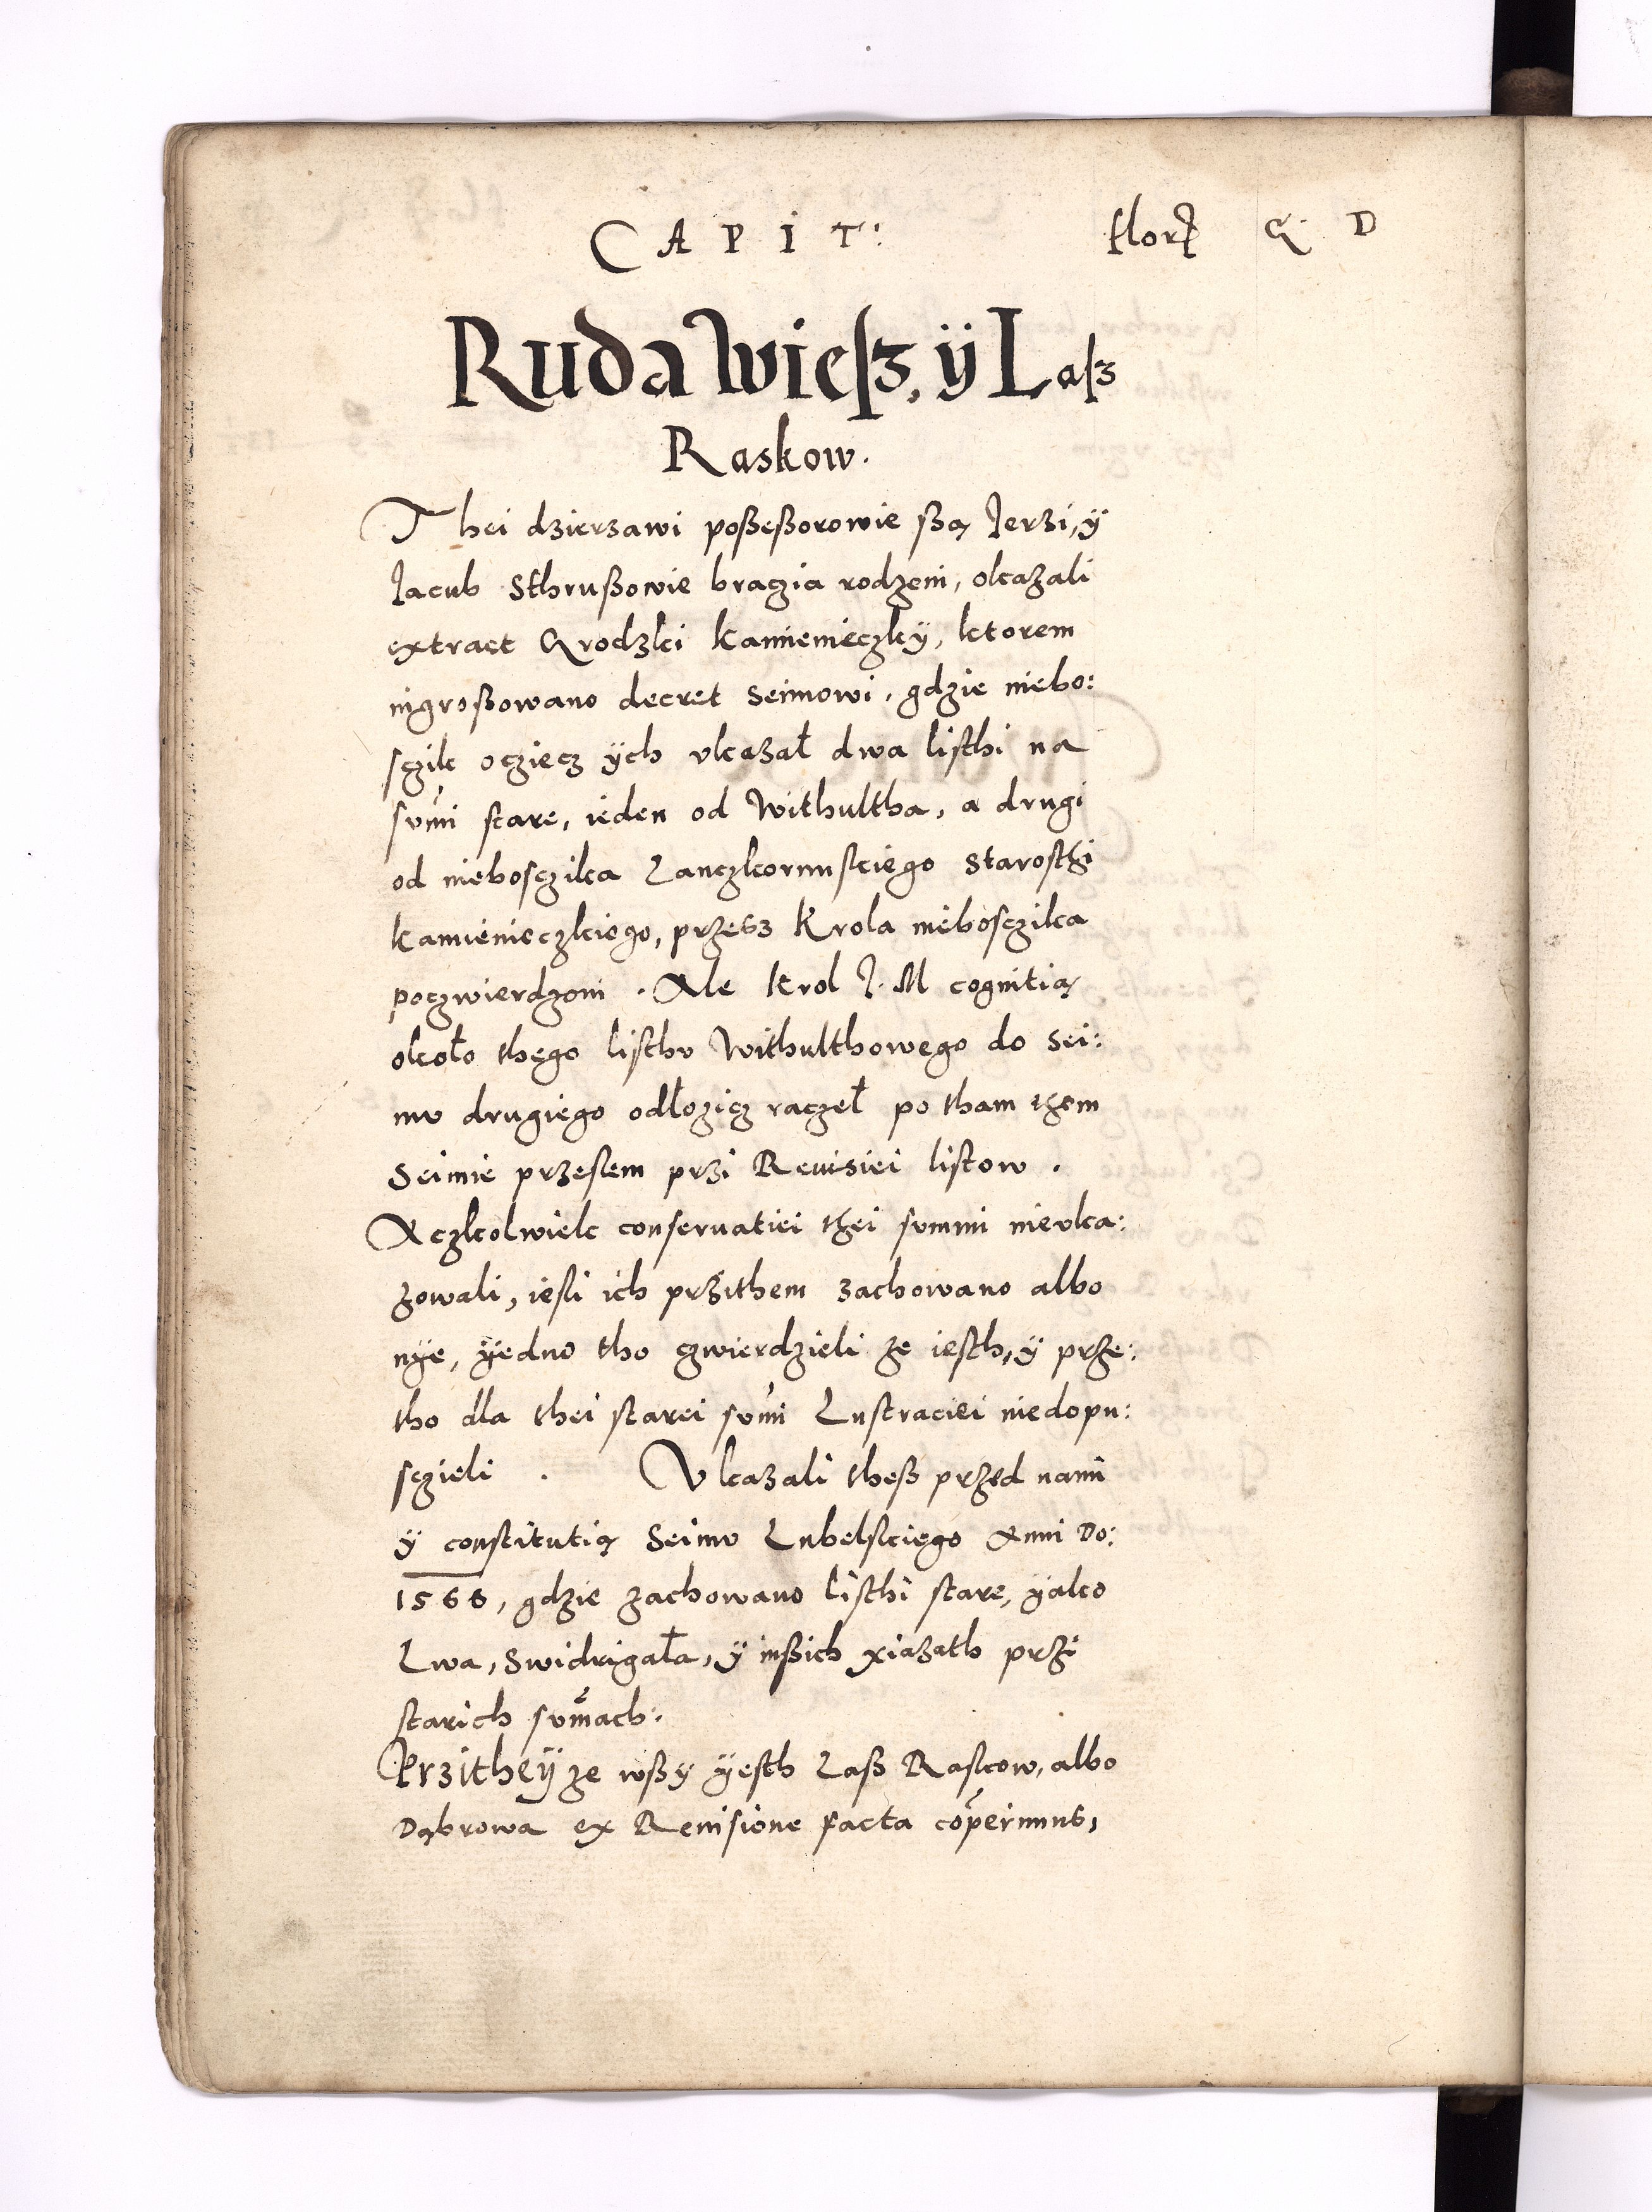 CAPIT: flor: G. D
Ruda wiesz, ÿ Lasz
Raskow.
Thei dzierzawi poßeßorowie ßą Jerzi, ÿ
Jacub Sthrußowie braczia rodzeni, okazali
extract Grodzki kamienieczkÿ, ktorem
ingroßowano decret Seimowi, gdzie niebo:
sczik ocziecz ÿch vkazał dwa listhi na
sumi stare, ieden od Withultha, a drugi
od niebosczika Lanczkorunskiego Starosthi
kamienieczkiego, przesz Krola niebosczika
poczwierdzoni. Ale Krol J. M cognitią
około thego listhv Withulthowego do Sei:
mv drugiego odłozicz raczeł po tham them
Seimie przeslem przi Reuisiei listow.
Aczkolwiek conseruatiei thei summi nievka:
zowali, iesli ich przithem zachowano albo
nÿe, ÿedno tho czwierdzieli ze iesth, ÿ prze:
tho dla thei starei sumi Lustraciei niedopu:
sczieli. Vkazali theß przed nami
ÿ constitutią Seimv Lubelskiego Anni Do:
1566, gdzie zachowano listhi stare, ÿako
Lwa, Swidrigała, ÿ inßich xiazath przi
starich sumach.
Przitheÿ ze wßÿ ÿesth Laß Raskow, albo
Dąbrowa ex Reuisione facta coperimus,